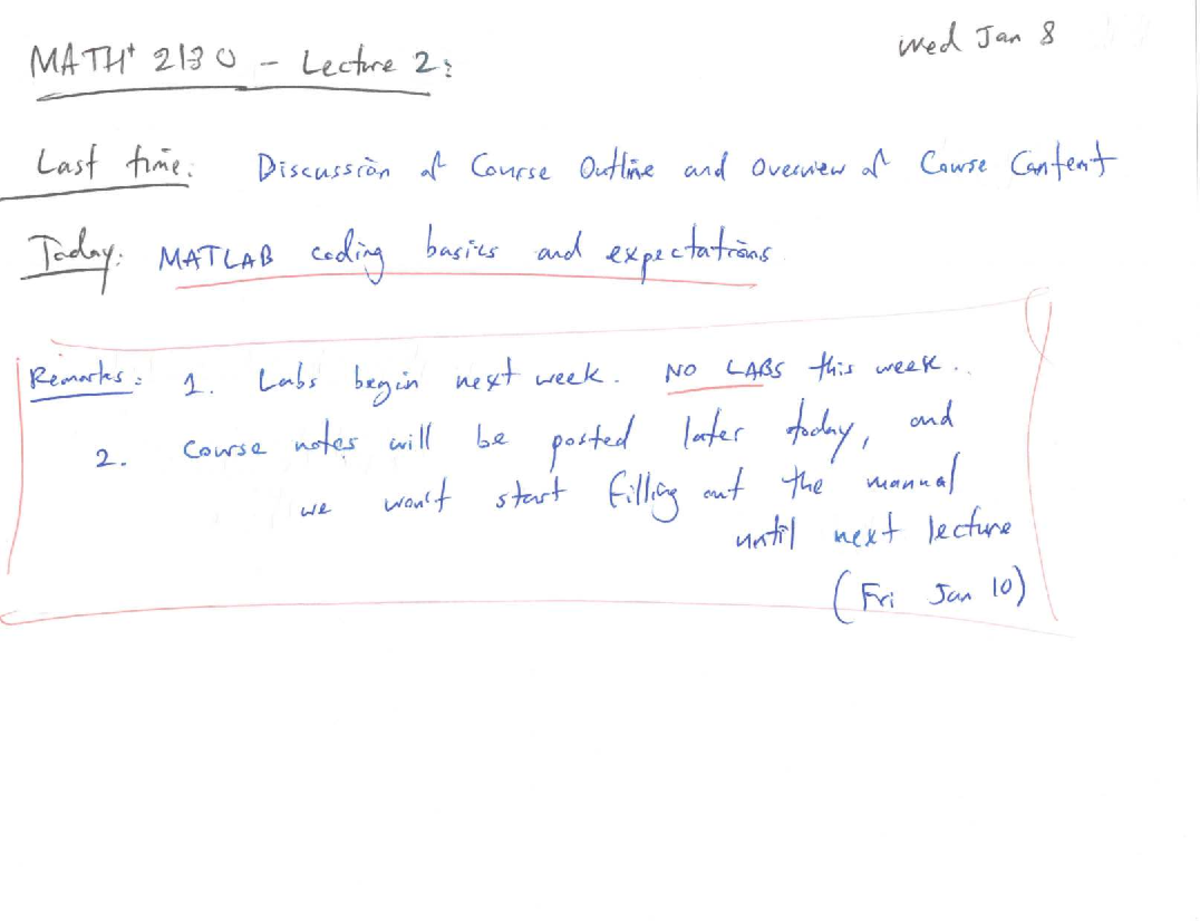 MATH 2130 - Lecture 2:
Wed Jan 8
Last time: Discussion of Course Outline and Overview of Course Content
Today: MATLAB coding basics and expectations
Remarks: 1. Labs begin next week. NO LABS this week..
2. Course notes will be posted later today, and
we won't start filling out the manual
until next lecture
(Fri Jan 10)